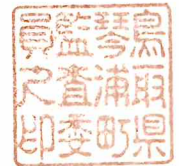 鳥取県
琴浦町
監査委
員之印